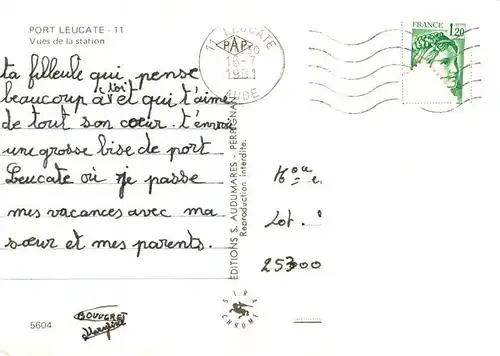 PORT LEUCATE - 11
Vues de la station
11 LEUCATE
PAP
16-7
1981
AUDE
FRANCE
1,20
ta filleule qui pense
beaucoup à toi et qui t'aime
de tout son cœur. t'envoie
une grosse bise de port
Leucate où je passe
mes vacances avec ma
sœur et mes parents.
EDITIONS S. AUDUMARES - PERPIGNAN
Reproduction interdite.
Lot.
25300
SIRA
CHROME
BOUVGRET
5604